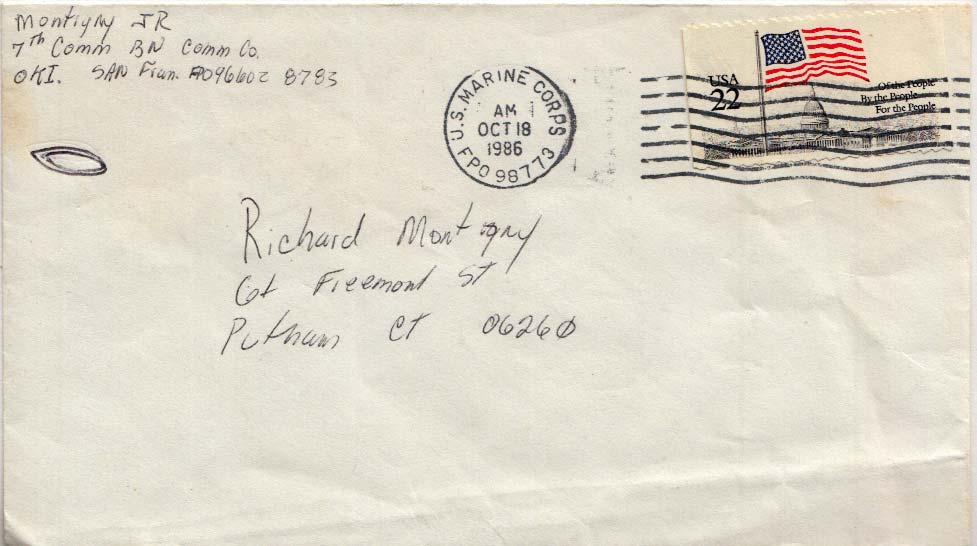 Montigny JR
7th Comm BN Comm Co.
OKI. SAN Fran. 8783
U.S. MARINE CORPS
AM
OCT 18
1986
FPO 98773
USA
22
Of the People
By the People
For the People
Richard Montigny
Freemont St
Putnam CT 06260